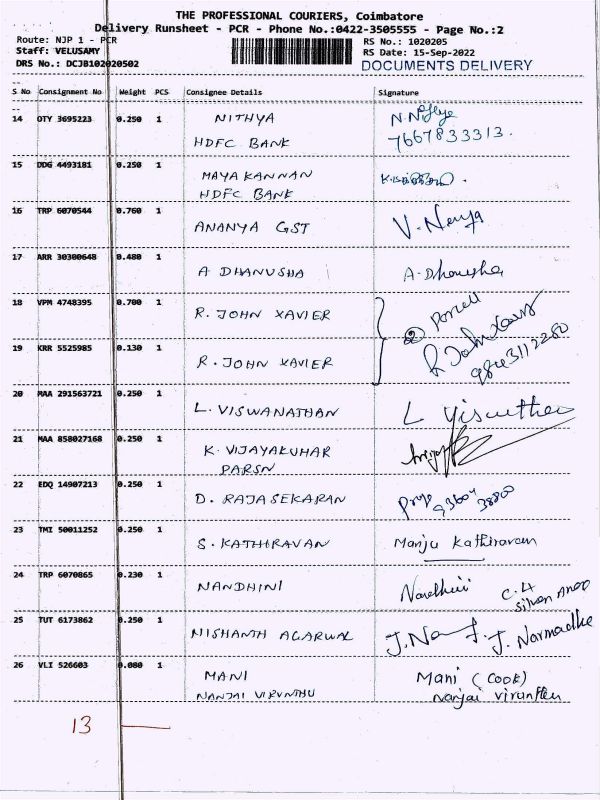 THE PROFESSIONAL COURIERS, Coimbatore
Delivery Runsheet - PCR - Phone No.:0422-3505555 - Page No.:2
Route: NJP 1 - PCR
Staff: VELUSAMY
DRS No.: DCJB102020502
RS No.: 1020205
RS Date: 15-Sep-2022
DOCUMENTS DELIVERY
S No Consignment No Weight PCS Consignee Details Signature
14 OTY 3695223 0.250 1 NITHYA
HDFC BANK 7667833313.
15 DDG 4493181 0.250 1 MAYAKANNAN
HDFC BANK
16 TRP 6070544 0.760 1 ANANYA GST V. Nenya
17 ARR 30300648 0.480 1 A DHANUSHA A. Dhanusha
18 VPM 4748395 0.700 1 R. JOHN XAVIER
19 KRR 5525985 0.130 1 R. JOHN XAVIER
② Parcel
R John Xavier
9843112280
20 MAA 291563721 0.250 1 L. VISWANATHAN L
21 MAA 858027168 0.250 1 K. VIJAYAKUMAR
PARSN
22 EDQ 14907213 0.250 1 D. RAJASEKARAN
23 TMI 50011252 0.250 1 S. KATHIRAVAN Manju Kathiravan
24 TRP 6070865 0.230 1 NANDHINI Nandhini C.4
25 TUT 6173862 0.250 1 NISHANTH AGARWAL J. Narmadha
26 VLI 526603 0.080 1 MANI Mani (Cook)
NANJAI VIRUNTHU Nanjai Virunthu
13